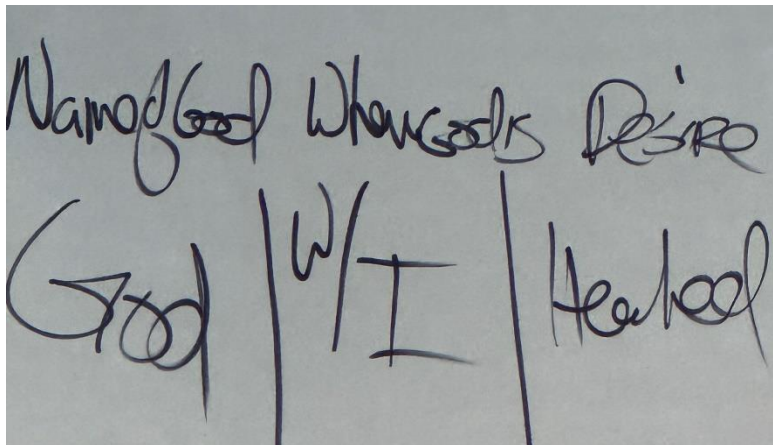 Name of God When God is Desire
God | W/I | Healed